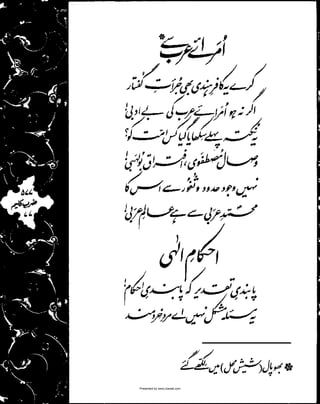 اُمرائے عرب سے*
کرے یہ کافرِ ہندی بھی جُرأتِ گفتار
اگر نہ ہو اُمرائے عرب کی بے ادبی!
یہ نکتہ پہلے سکھایا گیا کس اُمّت کو؟
وصالِ مُصطفویؐ، افتراقِ بُولہبی!
نہیں وجود حدود و ثغُور سے اس کا
محمدِؐ عربی سے ہے عالمِ عربی!
احکامِ الٰہی
پابندیِ تقدیر کہ پابندیِ احکام!
یہ مسئلہ مشکل نہیں اے مردِ خردمند
* بھوپال (شیش محل) میں لکھے گئے
۵۷۷
ضربِ کلیم
۷۷
Presented by www.ziaraat.com